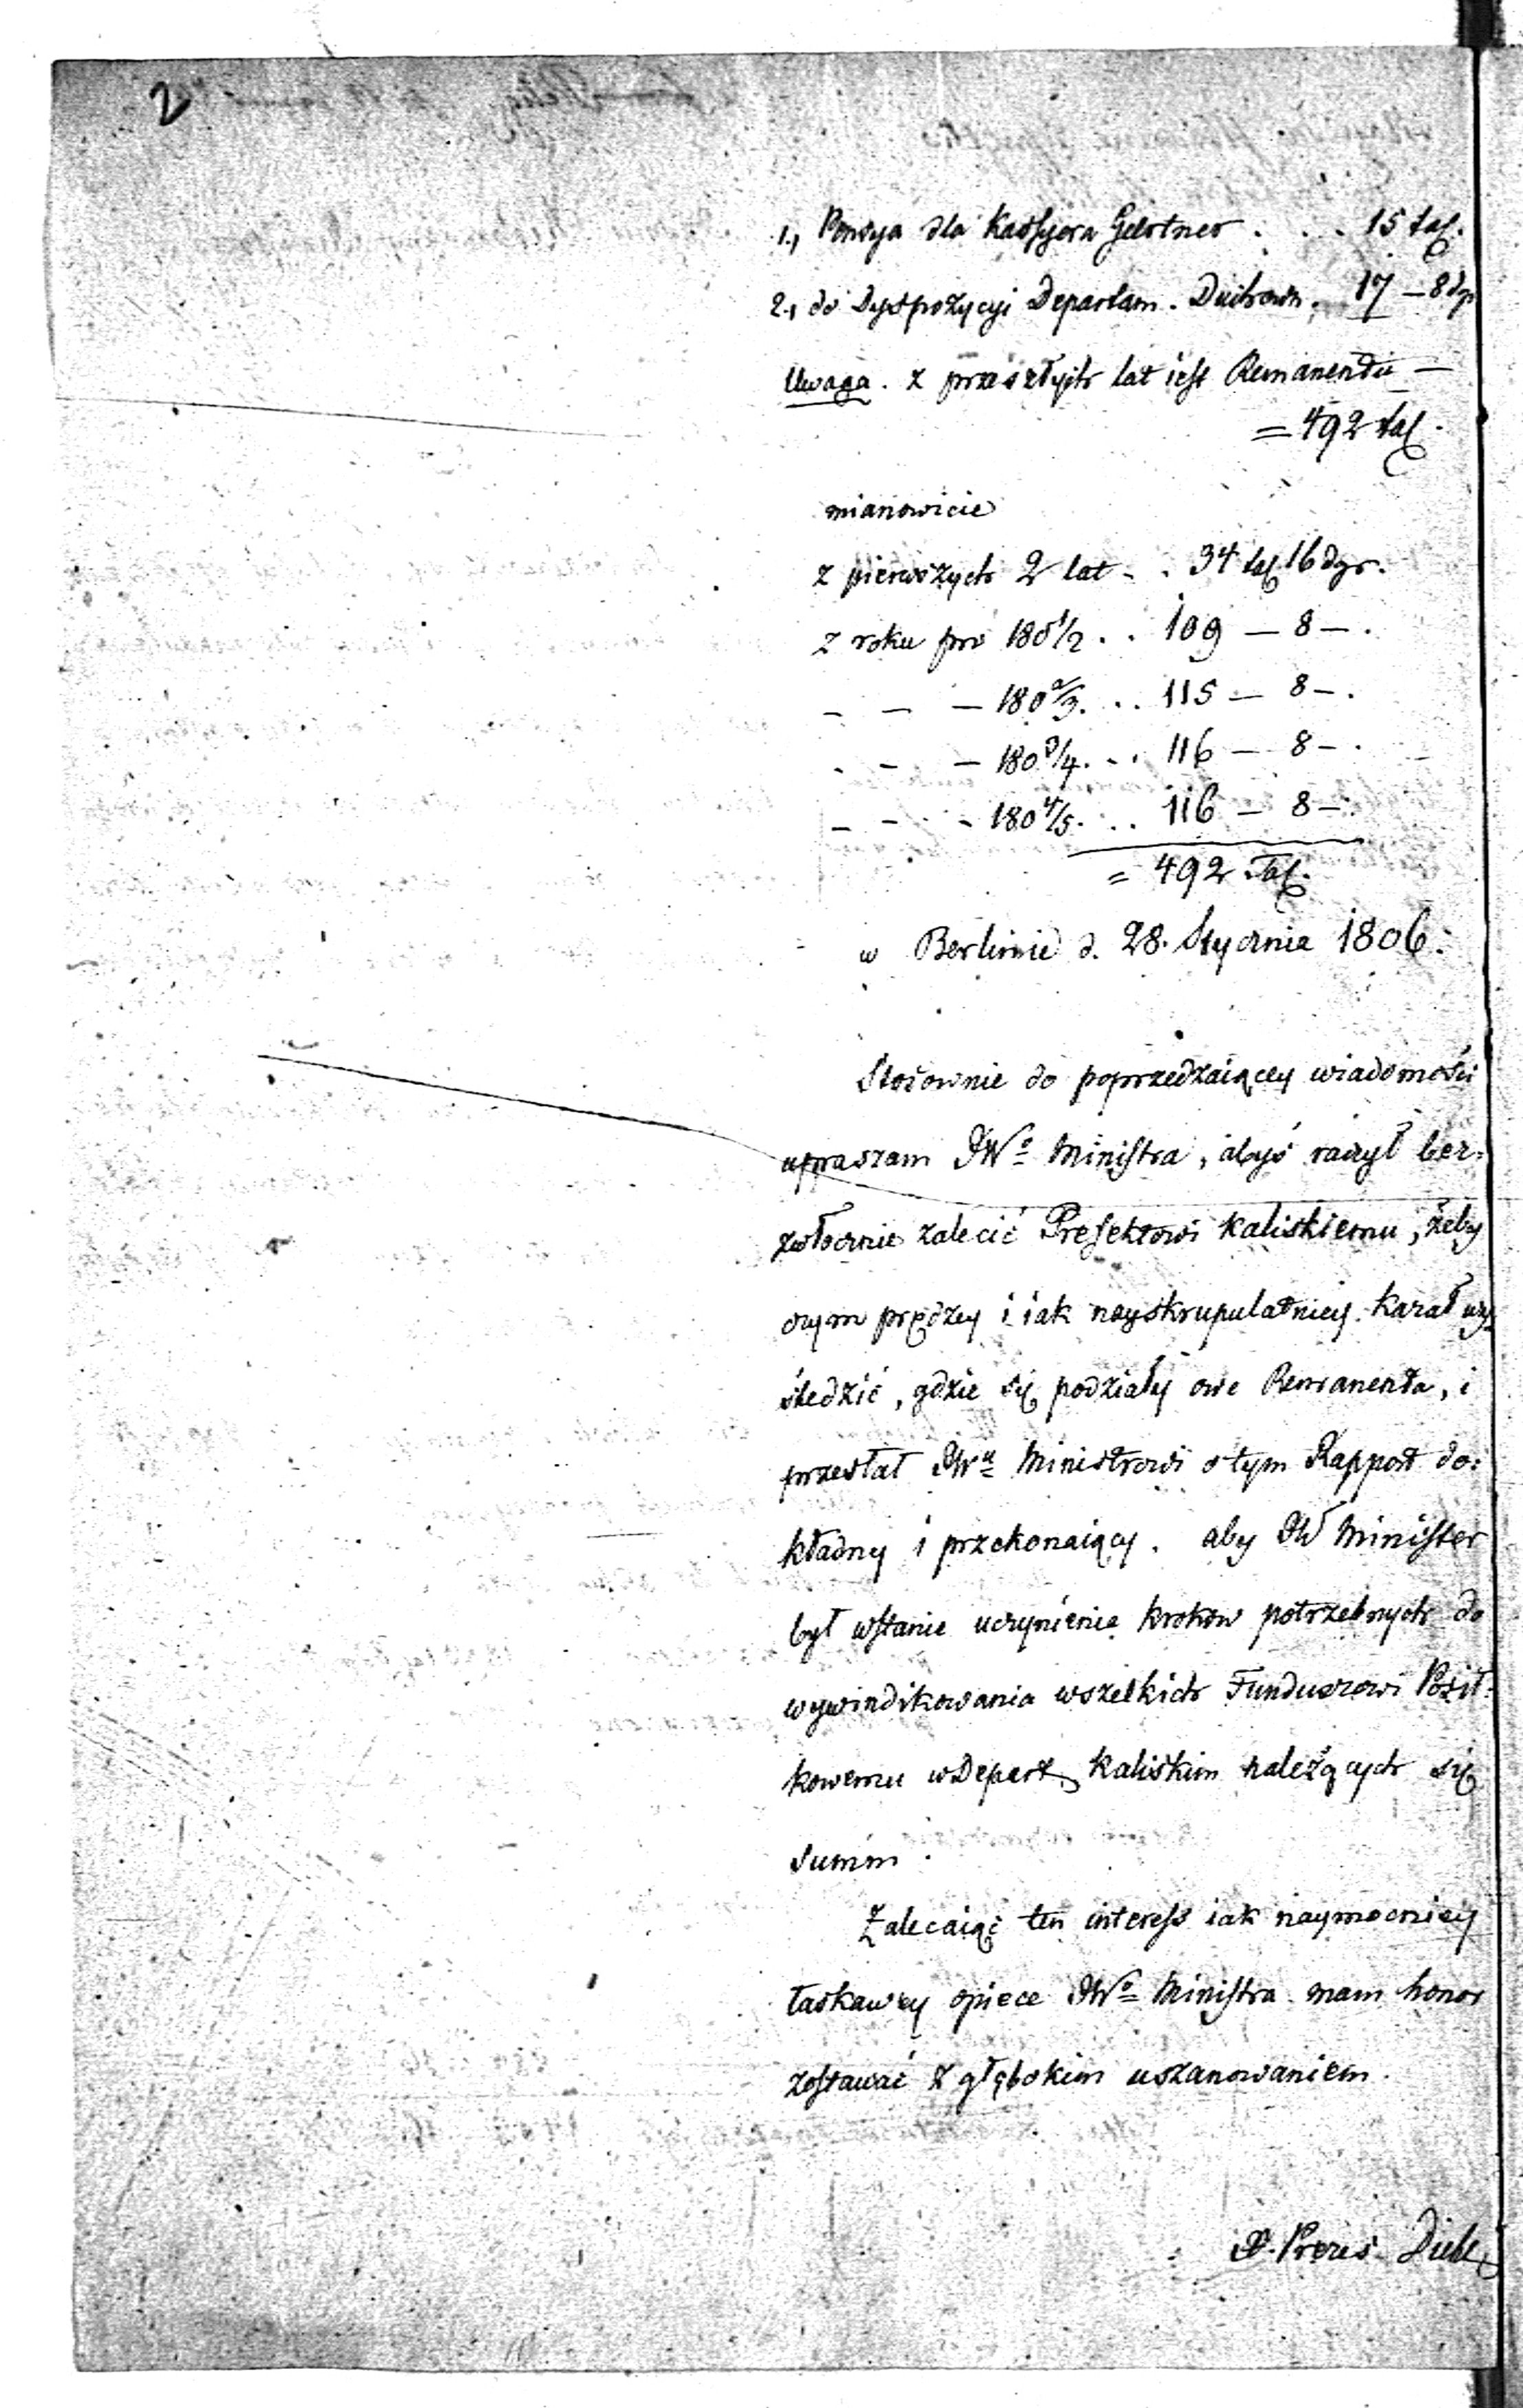 2
1., Pensya dla Kassyera Gertner . . . 15 tal.
2., do Dyspozycyi Departam. Duchown. 17 – 8 dgr
Uwaga. z przeszłych lat iest Remanentu —
= 492 tal.
mianowicie
z pierwszych 2 lat - . 34 tal 16 dgr.
z roku pro 180 1/2 . . 109 — 8 – .
– – – 180 2/3 . . . 115 — 8 – .
- – – 180 3/4 . - . 116 — 8 – .
– - - 180 4/5 . . . 116 – 8 – .
= 492 Tal.
w Berlinie d. 28. Stycznia 1806.
Stosownie do poprzedzaiącey wiadomości
upraszam JWo Ministra, abyś raczył bez-
zwłocznie zalecić Prefektowi Kaliskiemu, żeby
czym prędzey i iak nayskrupulatniey kazał wy-
śledzić, gdzie się podziały owe Remanenta, i
przesłał JWu Ministrowi o tym Rapport do-
kładny i przekonaiący. aby JW Minister
był wstanie uczynienia kroków potrzebnych do
wywindikowania wszelkich Funduszowi Posił-
kowemu w Depart. Kaliskim należących się
Summ.
Zalecaiąc ten interess iak naymocniey
łaskawey opiece JWo Ministra mam honor
zostawać z głębokim uszanowaniem.
X. Prezes Diehl